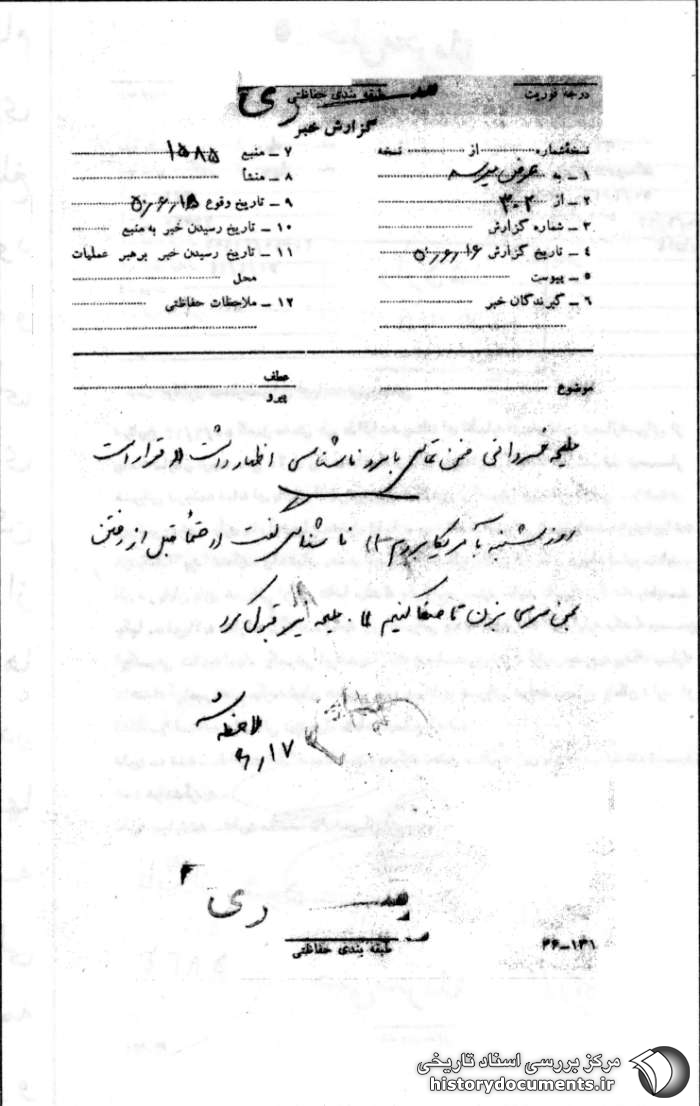 درجه فوریت
طبقه بندی حفاظتی
سری
گزارش خبر
نسخه‌شماره از نسخه
۱ ــ به عرض میرسد
۲ ــ از ۳۰۲
۳ ــ شماره گزارش
۴ ــ تاریخ گزارش ۵۰٫۶٫۱۶
۵ ــ پیوست
۶ ــ گیرندگان خبر
۷ ــ منبع ۱۵۸۵
۸ ــ منشأ
۹ ــ تاریخ وقوع ۵۰٫۶٫۱۵
۱۰ ــ تاریخ رسیدن خبر به منبع
۱۱ ــ تاریخ رسیدن خبر برهبر عملیات
محل
۱۲ ــ ملاحظات حفاظتی
موضوع
عطف
پیرو
ملیحه خسروانی ضمن تماسی با مرد ناشناسی اظهار داشت «قرار است
روز شنبه به آمریکا بروم» ناشناس گفت «حتماً قبل از رفتن
بمن سری بزن تا صفا کنیم» ملیحه نیز قبول کرد
ملاحظه شد
۶٫۱۷
سری
طبقه بندی حفاظتی
۲۶-۱۳۱
مرکز بررسی اسناد تاریخی
historydocuments.ir